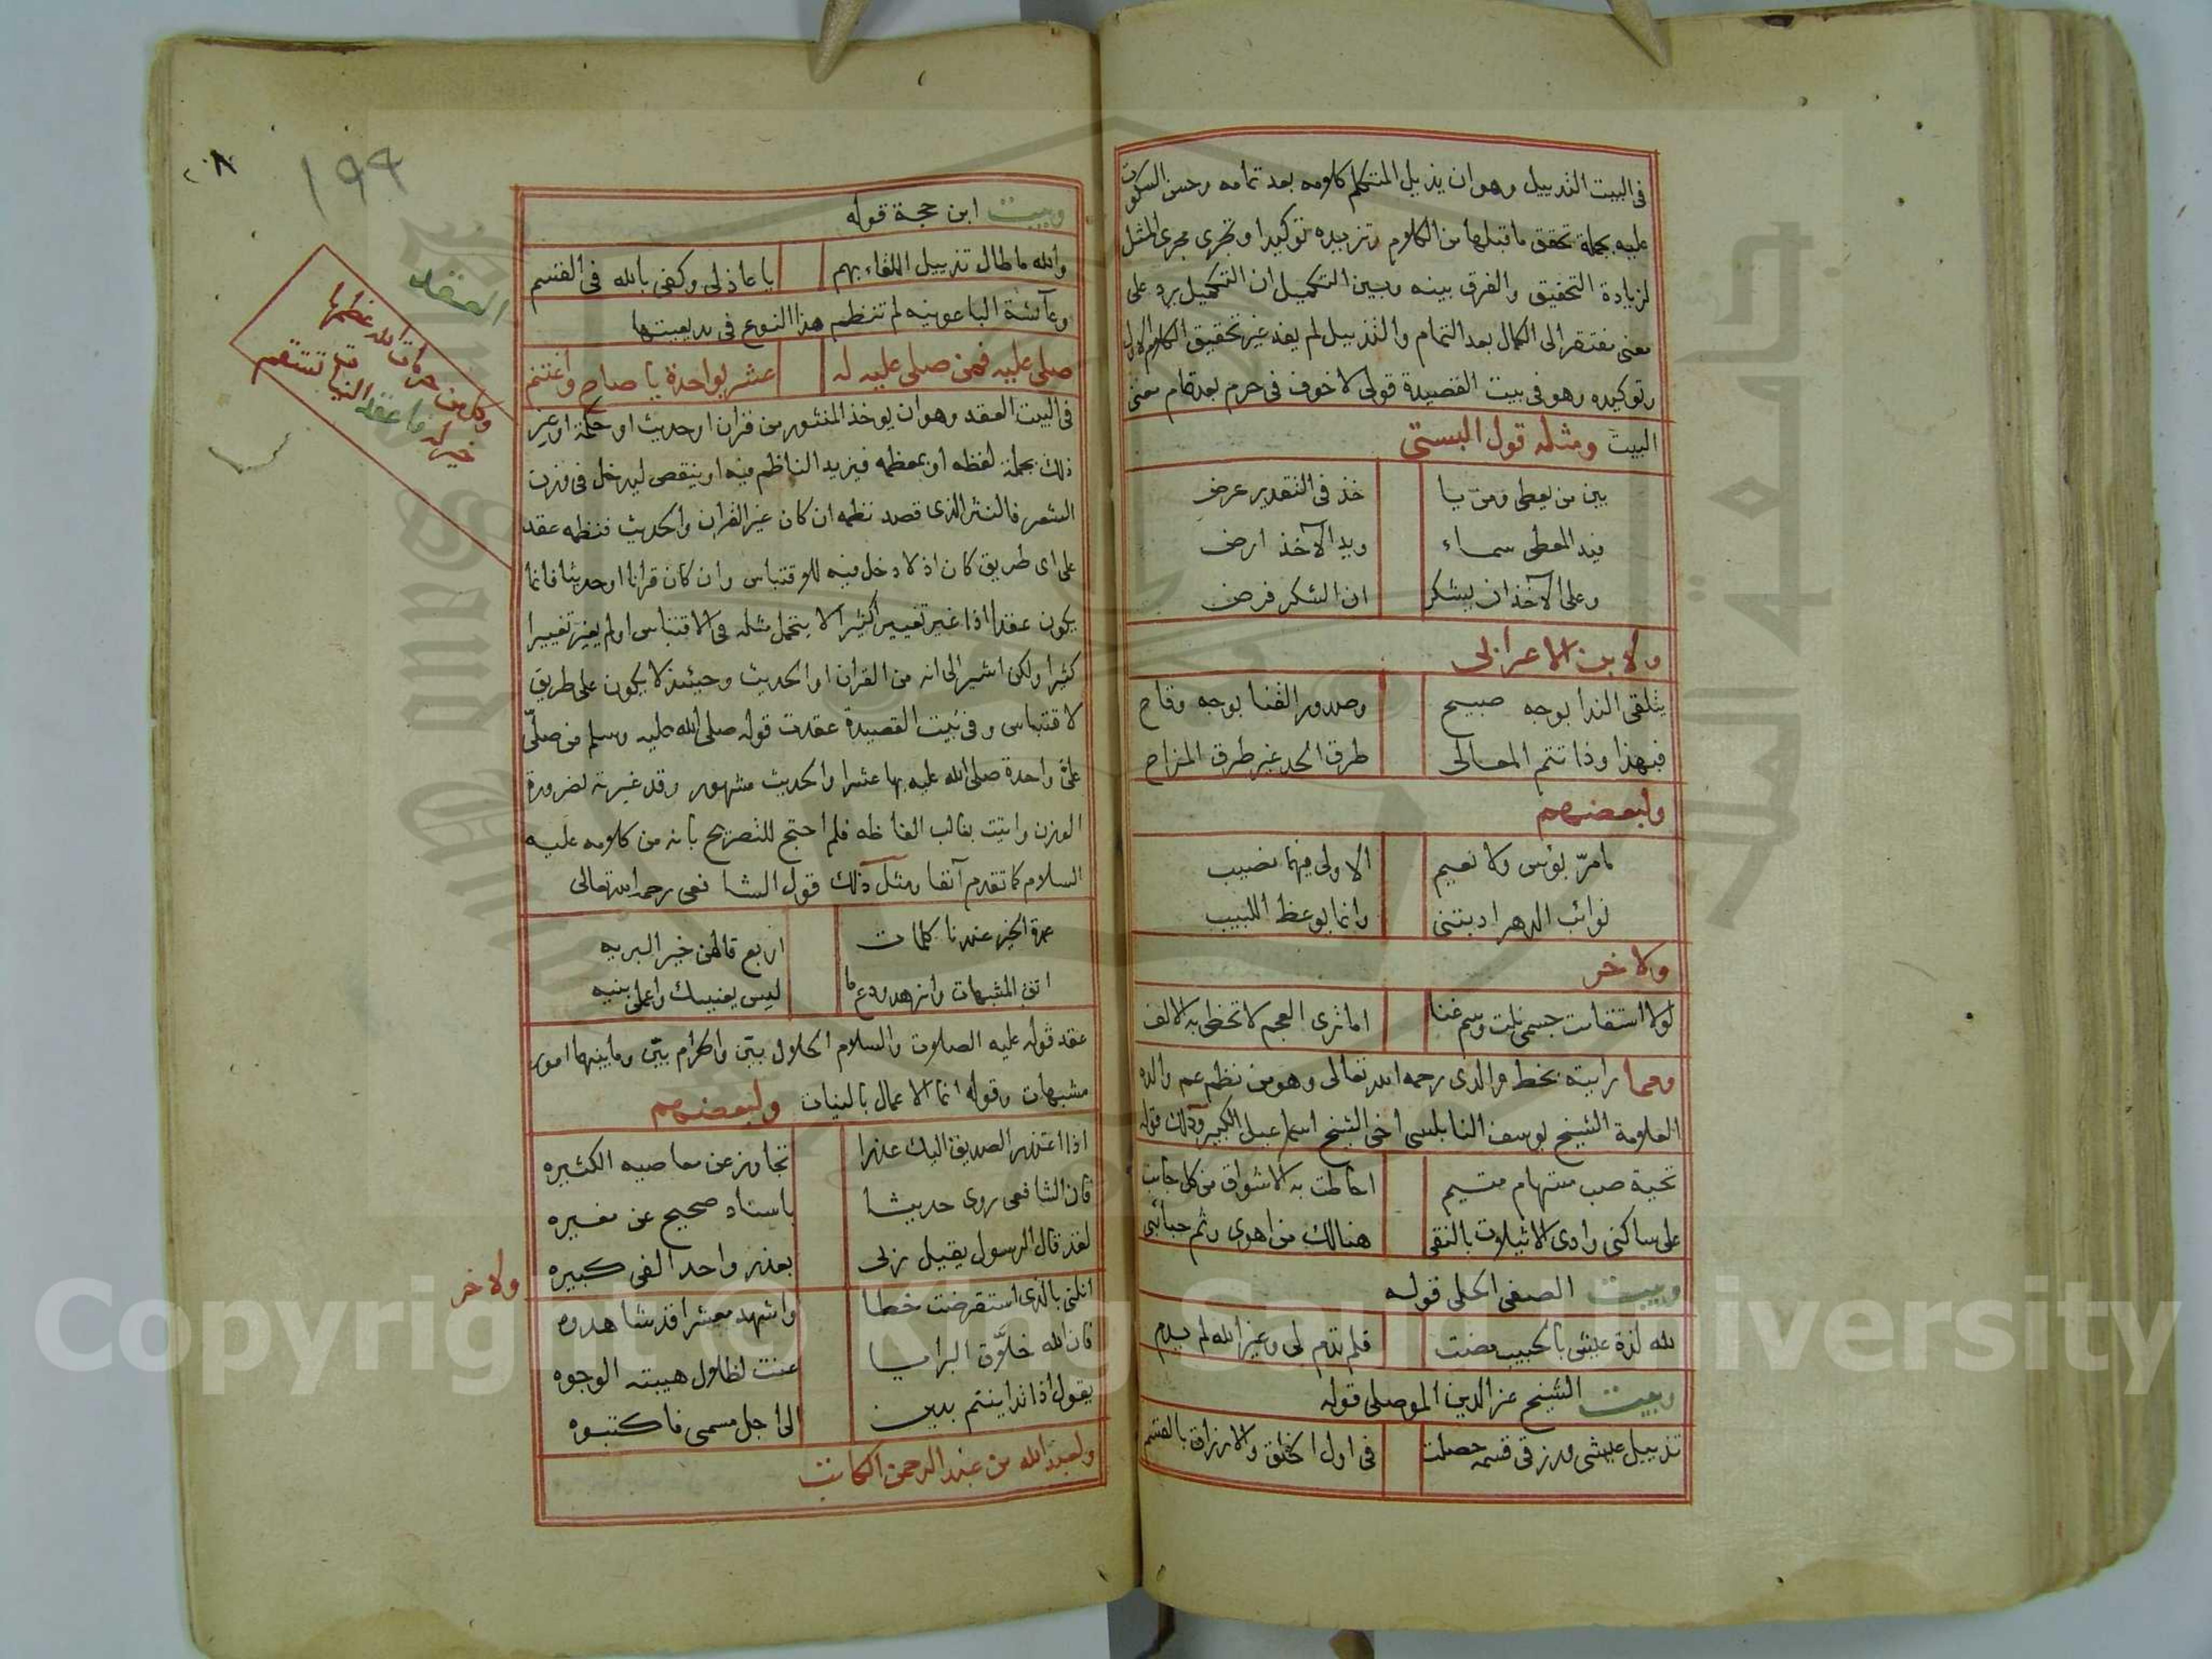 في البيت التذييل وهو ان يذيل المتكلم كلامه بعد تمامه وحسن السكوت
عليه بجملة تحقق ما قبلها من الكلام وتزيده توكيدا وتجرى مجرى المثل
لزيادة التحقيق والفرق بينه وبين التكميل ان التكميل يرد على
معنى مفتقر الى الكمال بعد التمام والتذييل لم يفد غير تحقيق الكلام الاول
وتوكيده وهو في بيت القصيدة قولي لا خوف في حرم بعد تمام معنى
البيت ومثله قول البستى
بين من يعطى ومن يا خذ في التقدير عرض
فيد المعطى سماء ويد الآخذ ارض
وعلى الآخذ ان يشكر ان الشكر فرض
ولابن الاعرابى
يتلقى الندا بوجه صبيح وصدور القنا بوجه وقاح
فبهذا وذا تتم المعالى طرق الجد غير طرق المزاح
ولبعضهم
ما مرّ بؤس ولا نعيم الا ولى فيهما نصيب
نوائب الدهر ادبتنى وانما يوعظ اللبيب
ولاخر
لولا استقامت جسمى نلت وسم غنا اما ترى العجم لا تحظى به الالف
ومما رايته بخط والدى رحمه الله تعالى وهو من نظم عم والده
العلامة الشيخ يوسف النابلسى اخى الشيخ اسماعيل الكبير وذلك قوله
تحية صب مستهام متيم احاطت به الاشواق من كل جانب
على ساكنى وادى الاثيلات بالنقى هنالك من اهوى وثم حبائبى
وبيت الصفى الحلى قوله
لله لذة عيش بالحبيب مضت فلم تدم لى وغير الله لم يدم
وبيت الشيخ عز الدين الموصلى قوله
تذييل عيشى ورزقى قسمة حصلت في اول الخلق والارزاق بالقسم
٢٠٨
١٩٩
وبيت ابن حجة قوله
والله ما طال تذييل اللقاء بهم يا عاذلى وكفى بالله في القسم
وعآئشة الباعونيه لم تنظم هذا النوع في بديعيتها
صلى عليه فمن صلى عليه له عشر بواحدة يا صاح واغتنم
العقد
في البيت العقد وهو ان يوخذ المنثور من قران او حديث او حكمة او غير
ذلك بجملة لفظه او بمعظمه فيزيد الناظم فيه او ينقص ليدخل في وزن
الشعر فالنثر الذى قصد نظمه ان كان غير القران والحديث فنظمه عقد
على اى طريق كان اذ لا دخل فيه للاقتباس وان كان قرانا او حديثا فانما
يكون عقدا اذا غير تغييرا كثيرا لا يتحمل مثله في الاقتباس او لم يغير تغييرا
كثيرا ولكن اشير الى انه من القران او الحديث وحينئذ لا يكون على طريق
لاقتباس وفي بيت القصيدة عقدت قوله صلى الله عليه وسلم من صلّى
علىّ واحدة صلى الله عليه بها عشرا والحديث مشهور وقد غيرته لضرورة
الوزن واتيت بغالب الفاظه فلم احتج للتصريح بانه من كلامه عليه
السلام كما تقدم آنفا ومثل ذلك قول الشافعى رحمه الله تعالى
عمدة الخير عندنا كلمات اربع قالهن خير البريه
اتق المشبهات وازهد ودع ما ليس يعنيك واعمل بنيه
عقد قوله عليه الصلوت والسلام الحلال بيّن والحرام بيّن وما بينهما امور
مشبهات وقوله انما الاعمال بالنيات ولبعضهم
اذا اعتذر الصديق اليك عذرا تجاوز عن معاصيه الكثيره
فان الشافعى روى حديثا باسناد صحيح عن مغيره
لقد قال الرسول يقيل ربى بعذر واحد الفى كبيره
ولاخر
انلنى بالذى استقرضت خطا واشهد معشرا قد شاهدوه
فان الله خلّاق البرايا عنت لظلال هيبته الوجوه
يقول اذا تداينتم بدين الى اجل مسمى فاكتبوه
ولعبد الله بن عبد الرحمن الكاتب
Copyright © King Saud University